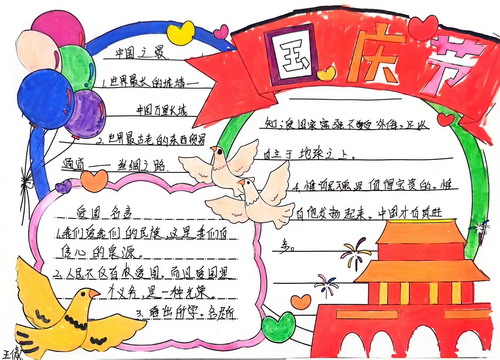 国庆节
中国之最
1.世界最长的城墙—
中国万里长城
2.世界最古老的东西贸易
通道——丝绸之路
爱国名言
1.我们爱我们的民族,这是我们自
信心的泉源。
2.人民不仅有权爱国,而且爱国是
个义务,是一种光荣。
3.唯出所学,各尽所
知,使国家富强不受外侮,足以
自立于地球之上。
4.惟有民魂是值得宝贵的,惟
有他发扬起来,中国才有真进
步。